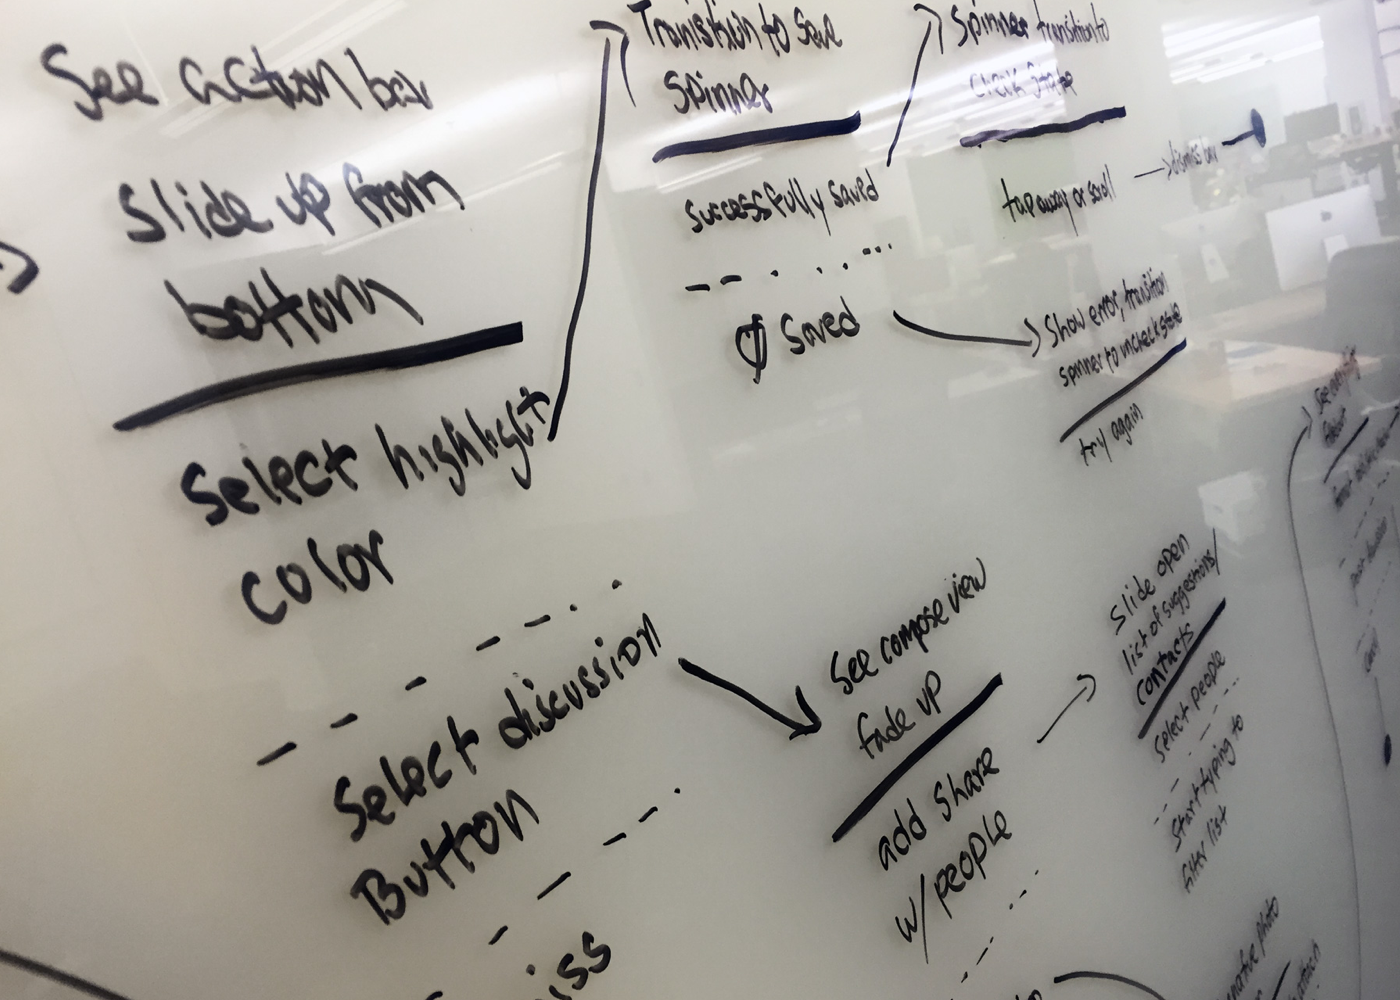 See action bar
slide up from
bottom
Select highlight
color
Select discussion
Button
Transition to save
spinner
successfully saved
Ø saved
Spinner transition to
check state
tap away or scroll
dismiss bar
Show error, transition
spinner to uncheck state
try again
See compose view
fade up
add share
w/people
slide open
list of suggestions/
contacts
select people
start typing to
filter list
photo